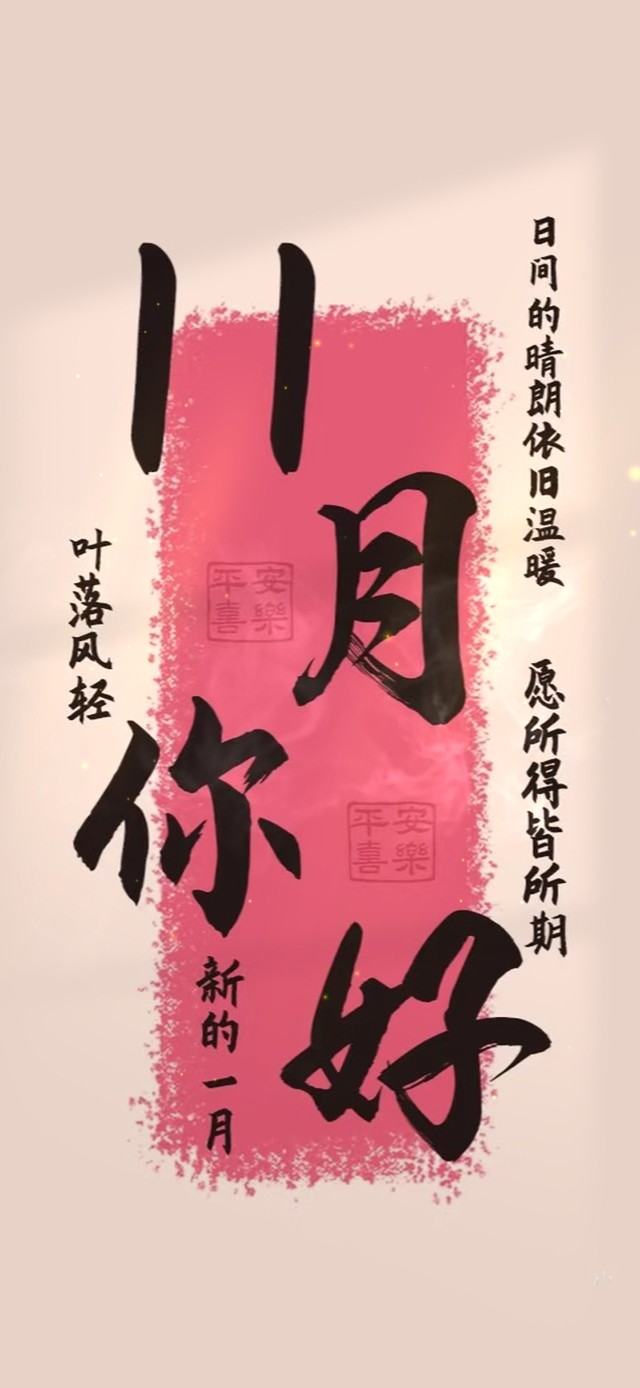 11月你好
日间的晴朗依旧温暖
愿所得皆所期
叶落风轻
新的一月
安樂
平喜
安樂
平喜